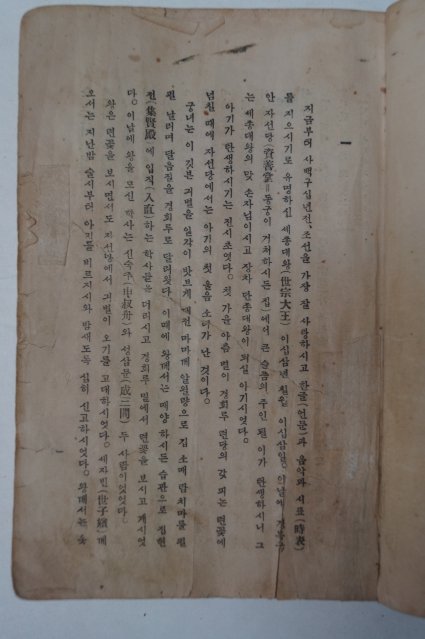 지금부터 사백구십년전, 조선을 가장 잘 사랑하시고 한글(언문)과 음악과 시표(時表)
를 지으시기로 유명하신 세종대왕(世宗大王) 이십삼년 칠월 이십삼일. 이날에 경복궁
안 자선당(資善堂=동궁이 거처하시든 집)에서 큰 슬픔의 주인 될 이가 탄생하시니 그
는 세종대왕의 맞 손자님이시고 장차 단종대왕이 되실 아기시엇다.
아기가 탄생하시기는 진시초엇다. 첫 가을 아츰 볕이 경회루 련당의 갖 피는 련꽃에
넘칠 때에 자선당에서는 아기의 첫 울음 소리가 난 것이다.
궁녀는 이 깃븐 긔별을 일각이 밧브게, 대전 마마께 알외량으로 깁 소매 람치마를 펄
펄 날리며 달음질을 경회루로 달려왓다. 이때에 왕께서는 매양 하시든 습관으로 집현
전(集賢殿)에 입직(入直)하는 학사들을 더리시고 경회루 밑에서 련꽃을 보시고 계시엇
다. 이날에 왕을 모신 학사는 신숙주(申叔舟)와 성삼문(成三問) 두 사람이엇엇다.
왕은 련꽃을 보시면서도 자선당에서 긔별이 오기를 고대하시엇다. 세자빈(世子嬪)께
오서는 지난밤 술시부터 아기를 비르지시와 밤새도록 심히 신고하시엇다. 왕께서는